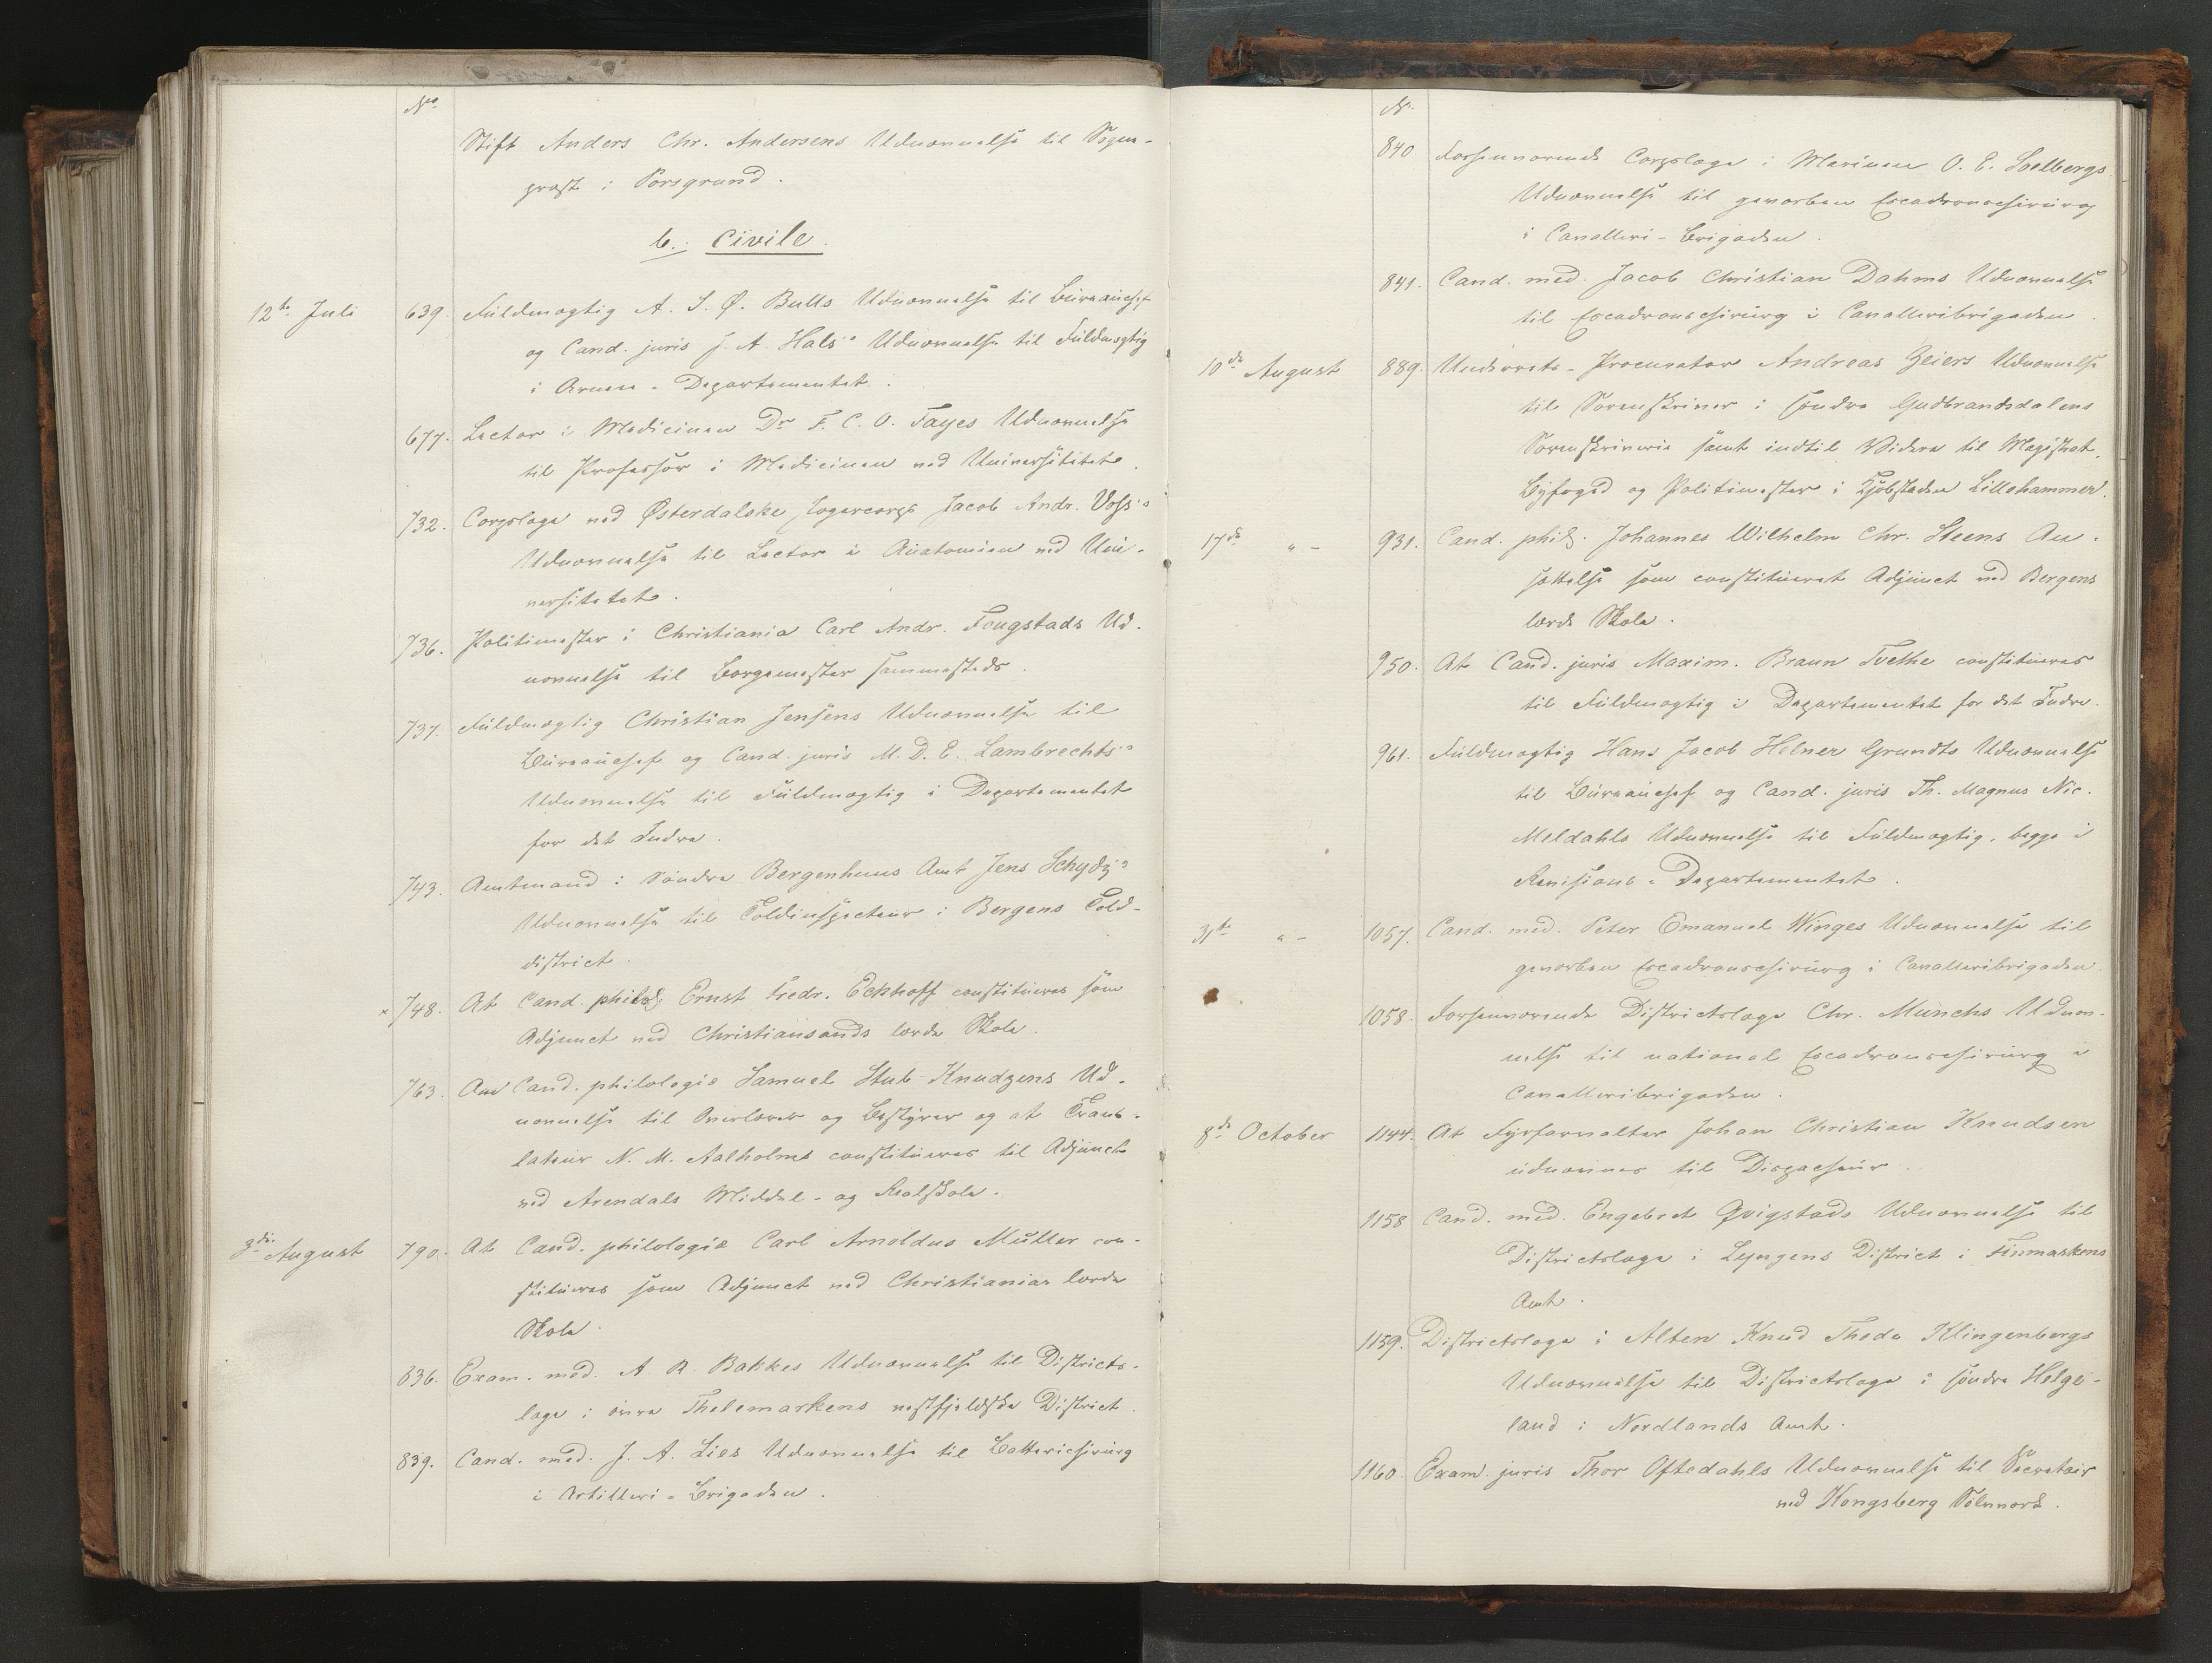 No
Stift Anders Chr. Andersens Udnævnelse til Sogne-
præst i Porsgrund.
b. Civile.
12te Juli 639. Fuldmægtig A. S. Ø. Bulls Udnævnelse til Büreauchef
og Cand. juris J. A. Hals's Udnævnelse til Fuldmægtig
i Armee-Departementet.
677. Lector i Medicinen Dr F. C. O. Fayes Udnævnelse
til Professor i Medicinen ved Universitetet.
732. Corpslæge ved Østerdalske Jægercorps Jacob Andr. Voss's
Udnævnelse til Lector i Anatomien ved Uni-
versitetet.
736. Politimester i Christiania Carl Andr. Fougstads Ud-
nævnelse til Borgemester sammesteds.
737. Fuldmægtig Christian Jensens Udnævnelse til
Büreauchef og Cand. juris M. D. E. Lambrechts's
Udnævnelse til Fuldmægtig i Departementet
for det Indre.
743. Amtmand i Søndre Bergenhuus Amt Jens Schydz's
Udnævnelse til Toldinspecteur i Bergens Told-
district.
× 748. At Cand. philol: Ernst Fredr. Eckhoff constitueres som
Adjunct ved Christiansands lærde Skole.
763. Om Cand. philologiæ Samuel Stub Knudzens Ud-
nævnelse til Overlærer og Bestyrer og at Trans-
lateur N. M. Aalholms constitueres til Adjunct
ved Arendals Middel- og Realskole.
3die August 790. At Cand. philologiæ Carl Arnoldus Müller con-
stitueres som Adjunct ved Christianias lærde
Skole.
836. Exam. med. A. R. Bakkes Udnævnelse til Districts-
læge i øvre Thelemarkens vestfjeldske District.
839. Cand. med. J. A. Lies Udnævnelse til Batterichirurg
i Artilleri-Brigaden.
No
840. Forhenværende Corpslæge i Marinen O. E. Soelbergs
Udnævnelse til gevorben Escadronschirurg
i Cavalleri-Brigaden.
841. Cand. med. Jacob Christian Dahms Udnævnelse
til Escadronschirurg i Cavalleribrigaden.
10de August 889. Underrets-Procurator Andreas Zeiers Udnævnelse
til Sorenskriver i søndre Gudbrandsdalens
Sorenskriverie samt indtil Videre til Magistrat,
Byfoged og Politimester i Kjøbstaden Lillehammer.
17de " - 931. Cand. phil. Johannes Wilhelm Chr. Steens An-
sættelse som constitueret Adjunct ved Bergens
lærde Skole.
950. At Cand. juris Maxim. Braun Tvethe constitueres
til Fuldmægtig i Departementet for det Indre.
961. Fuldmægtig Hans Jacob Helner Grundts Udnævnelse
til Büreauchef og Cand. juris Th. Magnus Nic.
Meldahls Udnævnelse til Fuldmægtig, begge i
Revisions-Departementet.
31te " - 1057. Cand. med. Peter Emanuel Winges Udnævnelse til
gevorben Escadronschirurg i Cavalleribrigaden.
1058. Forhenværende Districtslæge Chr. Münchs Udnæv-
nelse til national Escadronschirurg i
Cavalleribrigaden.
8de October 1144. At Fyrforvalter Johan Christian Knudsen
udnævnes til Dispacheur.
1158 Cand. med. Engebret Qvigstads Udnævnelse til
Districtslæge i Lyngens District i Finmarkens
Amt.
1159. Districtslæge i Alten Knud Thede Klingenbergs
Udnævnelse til Districtslæge i søndre Helge-
land i Nordlands Amt.
1160. Exam. juris Thor Oftedahls Udnævnelse til Secretair
ved Kongsberg Sølvværk.